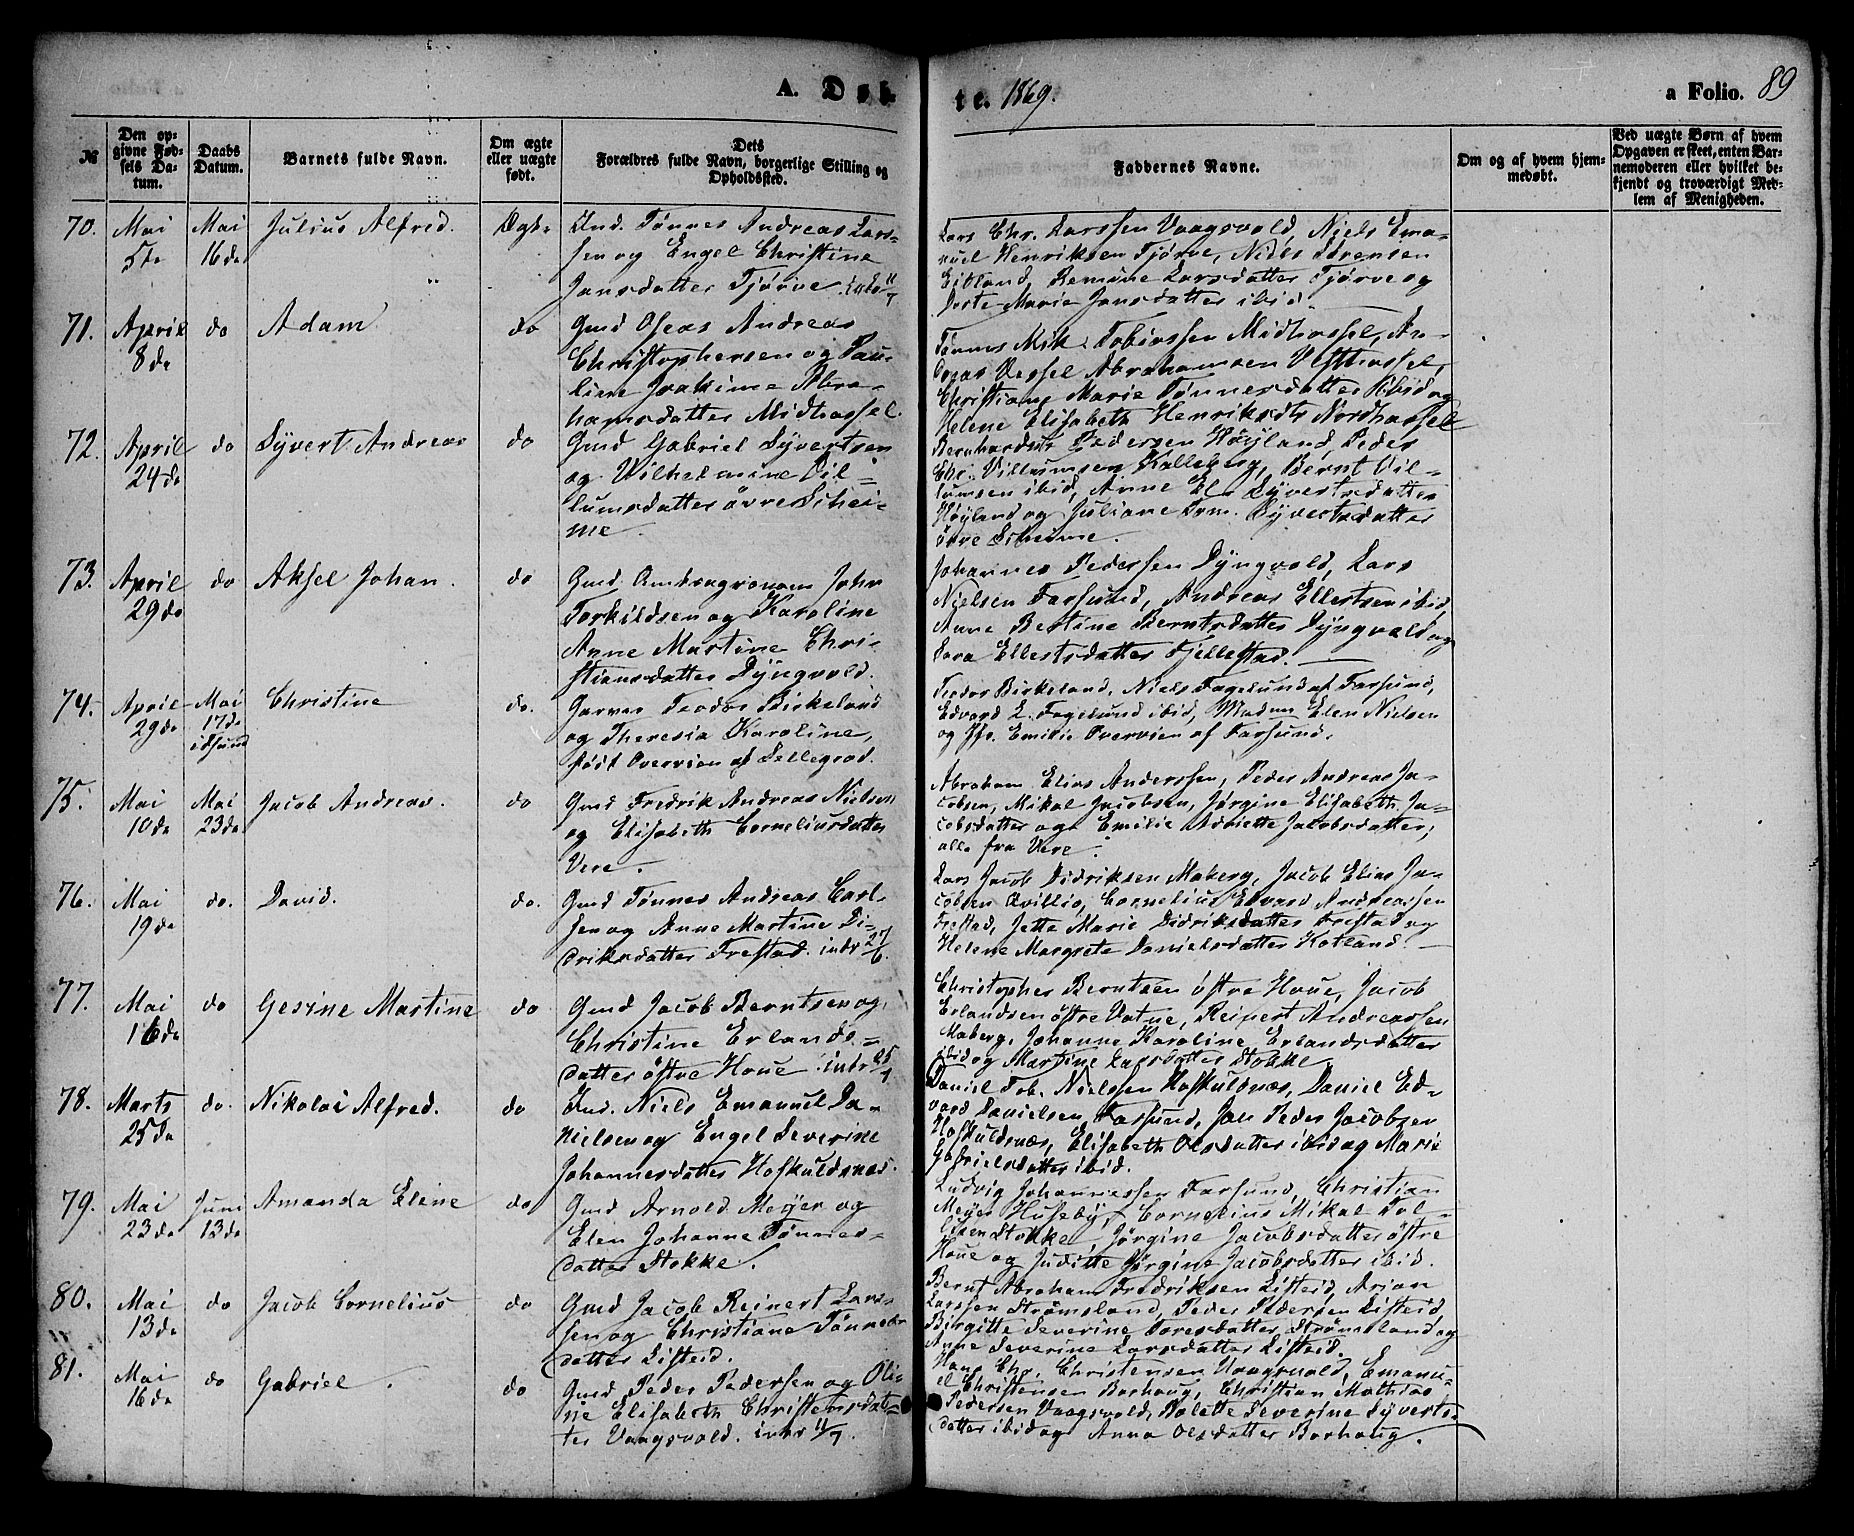 A. Døb-
te. 1869.
a Folio. 89
№
Den op-
givne Fød-
sels Da-
tum.
Daabs
Datum.
Barnets fulde Navn.
Om ægte
eller uægte
født.
Dets
Forældres fulde Navn, borgerlige Stilling og
Opholdssted.
Faddernes Navne.
Om og af hvem hjem-
medøbt.
Ved uægte Børn af hvem
Opgaven er skeet, enten Bar-
nemoderen eller hvilket be-
kjendt og troværdigt Med-
lem af Menigheden.
70.
Mai
5de
Mai
16de
Julius Alfred.
Ægte
Ind. Tønnes Andreas Lars-
sen og Engel Christine
Jansdatter Tjørve
Lars Chr. Larssen Vaagsvold, Niels Ema-
nuel Henriksen Tjørve, Niels Sørensen
Eitland, Remine Larsdatter Tjørve og
Dorte Marie Jansdatter ibid.
71.
April
8de
do
Adam
do
Gmd Oseas Andreas
Christophersen og Pau-
line Joakime Abra-
hamsdatter Midhassel.
Tønnes Mik. Tobiassen Midhassel, An-
dreas Vessel Abrahamsen Vesthassel,
Christiane Marie Tønnesdatter ibid og
Helene Elisabeth Henriksdtr Nordhassel
72.
April
24de
do
Syvert Andreas
do
Gmd Gabriel Syvertsen
og Wilhelmine Vil-
lumsdatter øvre Skei-
me.
Bernhardus Pedersen Høyland, Peder
Chr. Villumsen Kalleberg, Bernt Vil-
lumsen ibid, Anne El. Syvertsdatter
Høyland og Juliane Syvertsdatter
øvre Skeime.
73.
April
29de
do
Aksel Johan.
do
Gmd. Ombragronom John
Torkildsen og Karoline
Anne Martine Chri-
stiansdatter Dyngvold.
Johannes Pedersen Dyngvold, Lars
Nielsen Farsund, Andreas Ellertsen ibid,
Anne Bertine Berntsdatter Dyngvold og
Sara Ellertsdatter Fjellestad.
74.
April
29de
Mai
17de
i Fsund
Christine
do.
Garver Teodor Birkeland
og Theresia Karoline,
født Overvien af Sellegrod.
Teodor Birkeland, Niels Fagelund af Farsund,
Edvard L. Fagelund ibid, Madam Elen Nielsen
og Jfr. Emilie Overvien af Farsund.
75.
Mai
10de
Mai
23de
Jacob Andreas.
do
Gmd Fredrik Andreas Nielsen
og Elisabeth Corneliusdatter
Vere.
Abraham Elias Anderssen, Peder Andreas Ja-
cobsen, Mikal Jacobsen, Jørgine Elisabeth Ja-
cobsdatter og Emilie Adriette Jacobsdatter,
alle fra Vere.
76.
Mai
19de
do.
David.
do.
Gmd Tønnes Andreas Carl-
sen og Anne Martine Di-
driksdatter Frestad. intr 27/6.
Lars Jacob Didriksen Maberg, Jacob Elias Ja-
cobsen Qvillio, Cornelius Edvard Andreassen
Frestad, Jette Marie Didriksdatter Frestad og
Helene Margrete Danielsdatter Kotland.
77.
Mai
16de
do
Gesine Martine
do
Gmd Jacob Berntsen og
Christine Erlands-
datter østre Houe. intr
Christopher Berntsen østre Houe, Jacob
Erlandsen østre Vatne, Reinert Andreassen
Maberg, Johanne Karoline Erlandsdatter
ibid og Martine Larsdatter Stokke
78.
Marts
25de
do.
Nikolai Alfred.
do
Ind. Niels Emanuel Da-
nielsen og Engel Severine
Johannesdatter Hofkuldsnæs.
Daniel Tob. Nielsen Hofkuldsnæs, Daniel Ed-
vard Danielsen Farsund, Joh Peder Jacobsen
Hofkuldsnæs, Elisabeth Olsdatter ibid og Marie
Gabrielsdatter ibid.
79.
Mai
23de
Juni
13de
Amanda Eline
do
Gmd Arnold Meyer og
Elen Johanne Tønnes-
datter Stokke.
Ludvig Johannessen Farsund, Christian
Meyer Huseby, Cornelius Mikal Tol-
lisen Stokke, Jørgine Jacobsdatter østre
Houe og Juditte Jørgine Jacobsdatter ibid.
80.
Mai
13de
do
Jacob Cornelius
do
Gmd Jacob Reinert Lars-
sen og Christiane Tønnes-
datter Listeid.
Bernt Abraham Fredriksen Listeid, Arian
Larssen Strømsland, Peder Pedersen Listeid,
Birgitte Severine Toresdatter Strømsland og
Anne Severine Larsdatter Listeid.
81.
Mai
16de
do
Gabriel.
do
Gmd Peder Pedersen og Oli-
ne Elisabeth Christensdat-
ter Vaagsvold. intr 11/7.
Hans Chr. Christensen Vaagsvold, Emanu-
el Christensen Borhaug, Christian Mathias
Pedersen Vaagsvold, Rolette Severine Syverts-
datter ibid og Anna Olsdatter Borhaug.